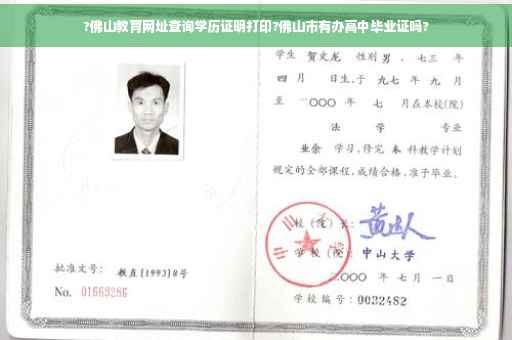 ?佛山教育网址查询学历证明打印?佛山市有办高中毕业证吗?
学生 贺文龙 性别 男，七三 年
四 月 日生，于 九七 年 九 月
至 二〇〇〇 年 七 月在本校(院)
法 学 专业
业余 学习，修完 本 科教学计划
规定的全部课程，成绩合格，准予毕业。
校（院）长：
学 校（院）：中山大学
二〇〇〇 年 七 月 一 日
学校编号：0032482
批准文号： 教直[1993]8号
No. 01669286